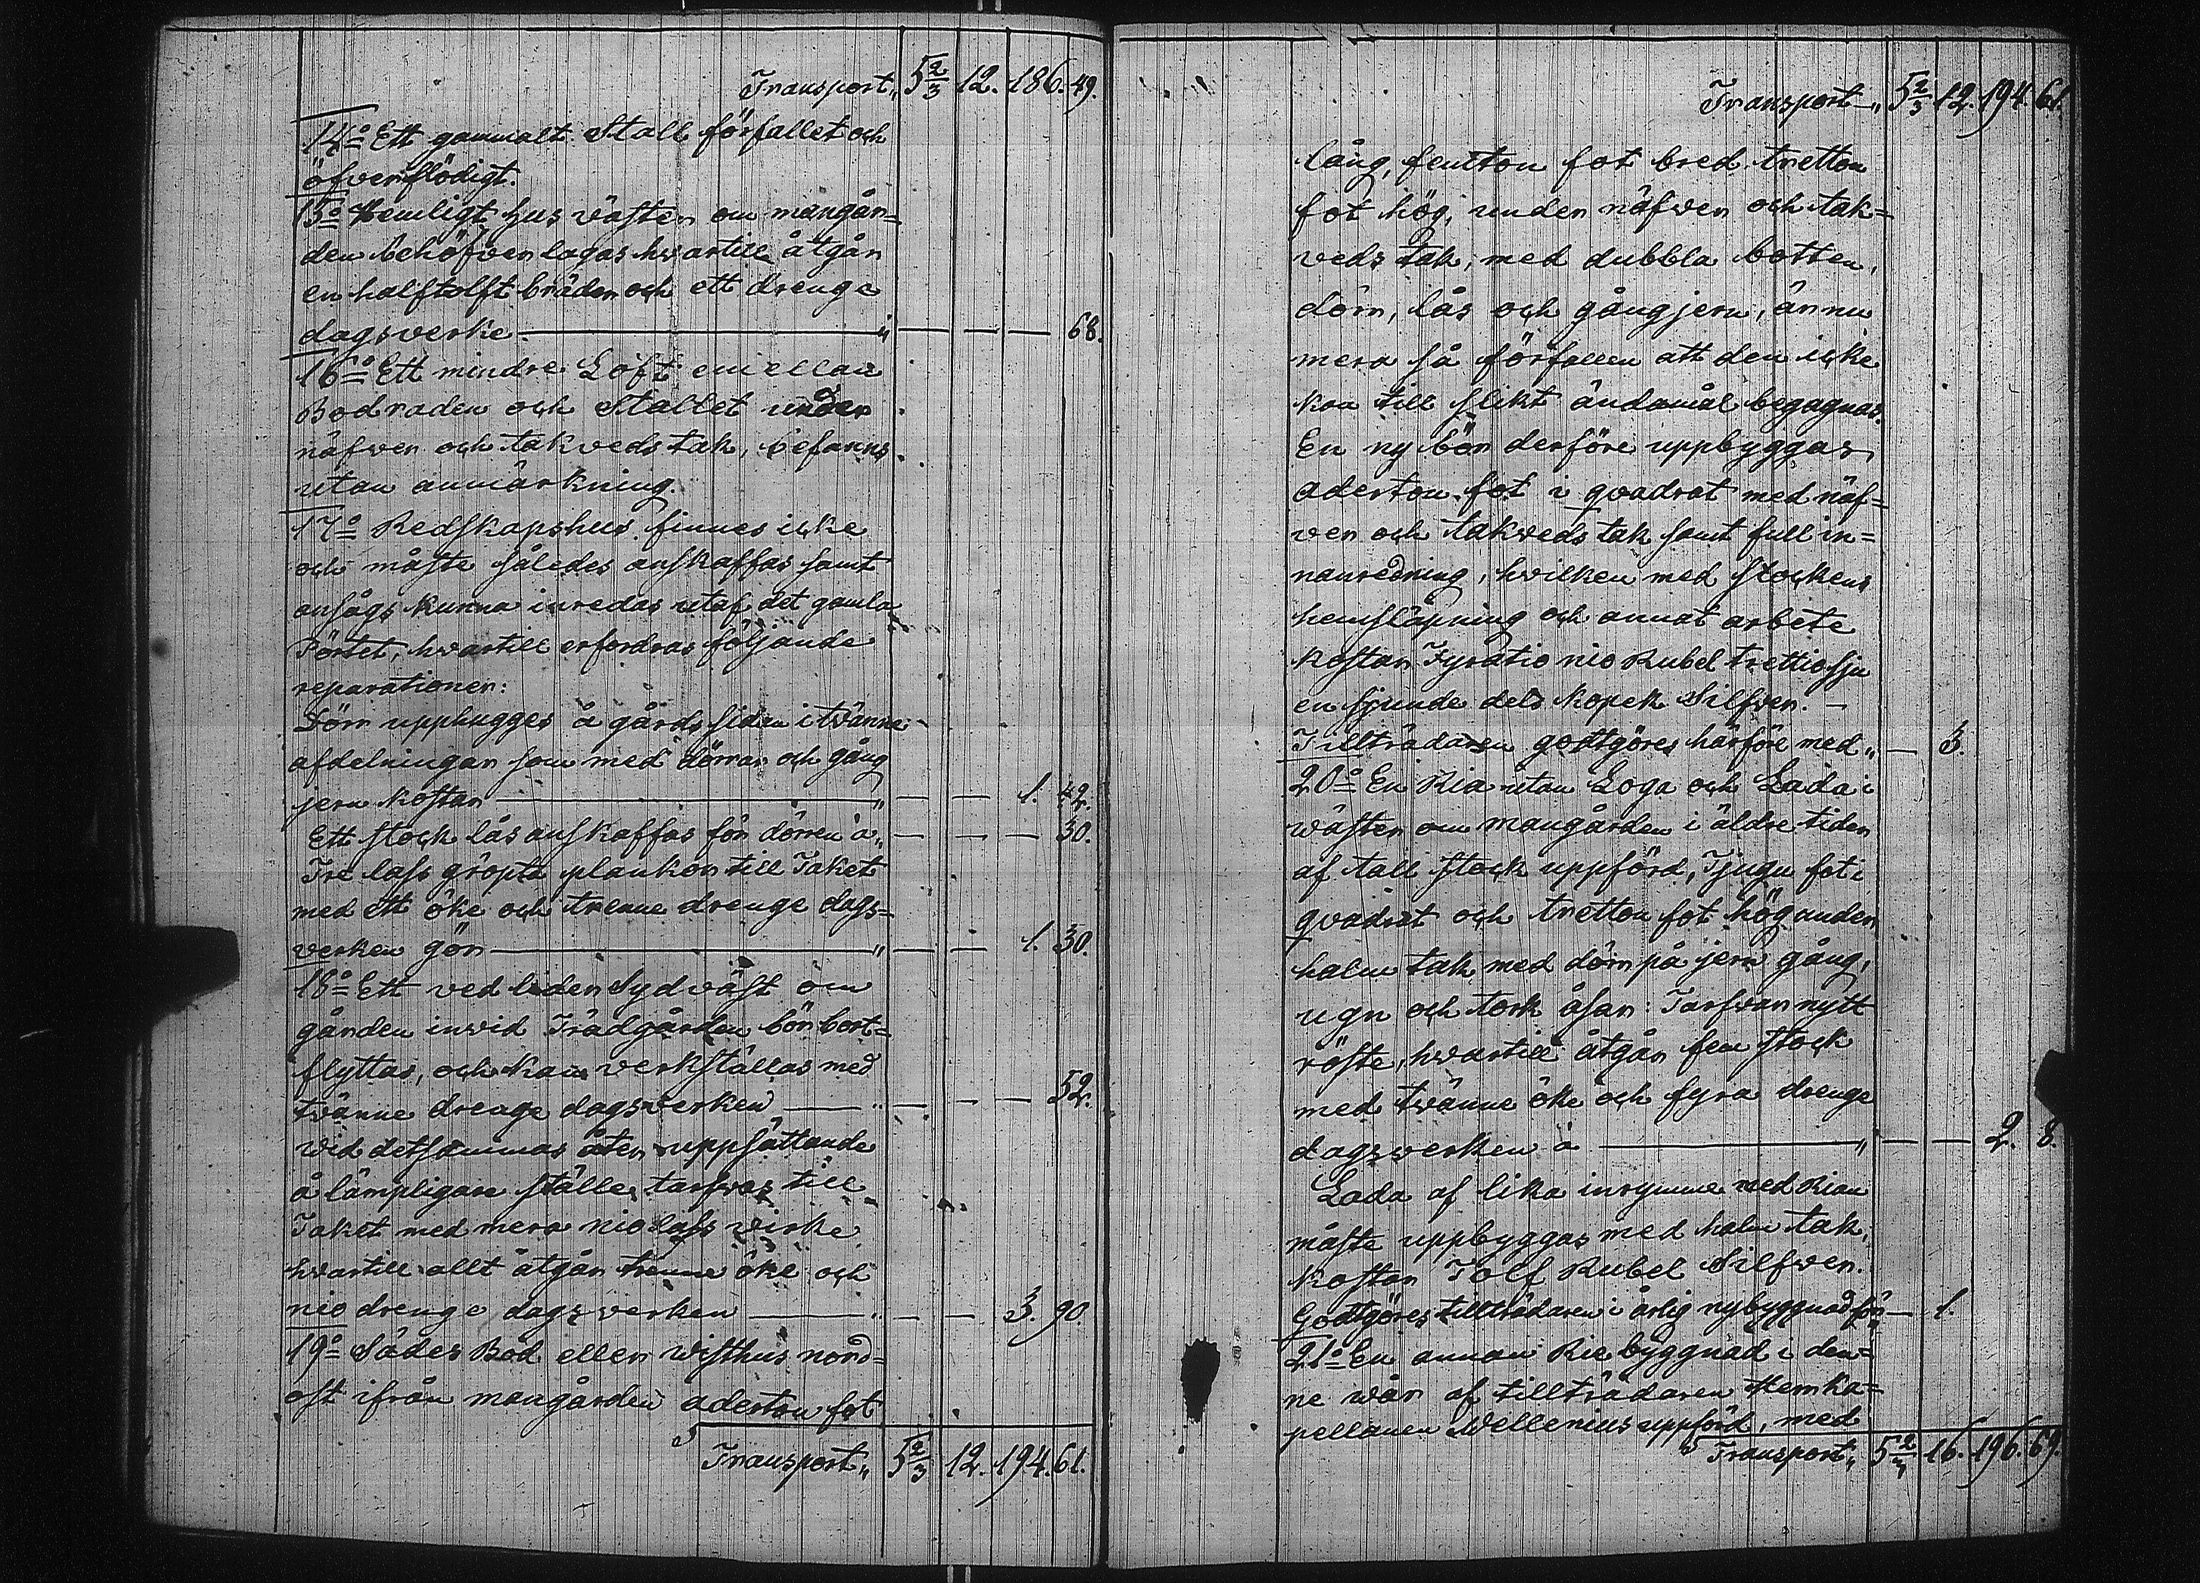 Transport,, 5 2/3 12. 186. 49.
14:o Ett gammalt Stall förfallet och
öfverflödigt.
15:o Hemligt hus väster om mangår=
den behöfver lagas hvartill åtgår
en half tolft bräder och ett drenge
dagsverke ,, — — — 68.
16:o Ett mindre Loft emellan
Bodraden och Stallet under
näfver och takveds tak, befanns
utan anmärkning.
17:o Redskapshus finnes icke
och måste således anskaffas samt
ansågs kunna inredas utaf det gamla
Pörtet, hvartill erfordras följande
reparationer:
Dörr upphugges å gårds sidan i tvänne
afdelningar som med dörrar och gång
jern kostar ,, — — 1. 42.
Ett stock lås anskaffas för dörren a ,, — — — 30.
Tre lass gröpta plankor till Taket
med ett öke och trenne drenge dags=
verken gör ,, — — 1. 30.
18:o Ett ved lider Sydväst om
gården invid Trädgården bör bort=
flyttas, och kan verkställas med
tvänne drenge dagsverken ,, — — — 52.
vid detsammas åter uppsättande
å lämpligare ställe tarfvas till
Taket med mera nio lass virke
hvartill allt åtgår trenne öke och
nio drenge dagsverken ,, — — 3. 90.
19:o Sädes Bod eller Visthus nord=
ost ifrån mangården aderton fot
Transport,, 5 2/3 12. 194. 61.
Transport ,, 5 2/3 12. 194. 61.
lång, femton fot bred tretton
fot hög, under näfver och tak=
veds tak, med dubbla botten,
dörr, lås och gångjern, ännu
mera så förfallen att den icke
kan till slikt ändamål begagnas.
En ny bör derföre uppbyggas,
aderton fot i qvadrat med näf=
ver och takveds tak samt full in=
nanredning, hvilken med stockens
hemsläpning och annat arbete
kostar Fyratio nio Rubel trettiosju
en sjunde dels kopek Silfver. —
Tillträdaren godtgöres härföre med ,, — 3.
20:o En Ria utan Loga och Lada i
väster om mangården i äldre tider
af tall stock uppförd, Tjugu fot i
qvadrat och tretton fot hög under
halm tak med dörr på jern gång,
ugn och tork åsar: Tarfvar nytt
röste, hvartill åtgår fem stock
med tvänne öke och fyra drenge
dagsverken à ,, — — 2. 8.
Lada af lika inrymme med Rian
måste uppbyggas med halm tak,
kostar Tolf Rubel Silfver.
Godtgöres tillträdaren i årlig nybyggnad för ,, — 1.
21:o En annan Rie byggnad i den=
ne vår af tillträdaren Herr Ka=
pellanen Wellenius uppförd, med
Transport ,, 5 2/3 16. 196. 69.